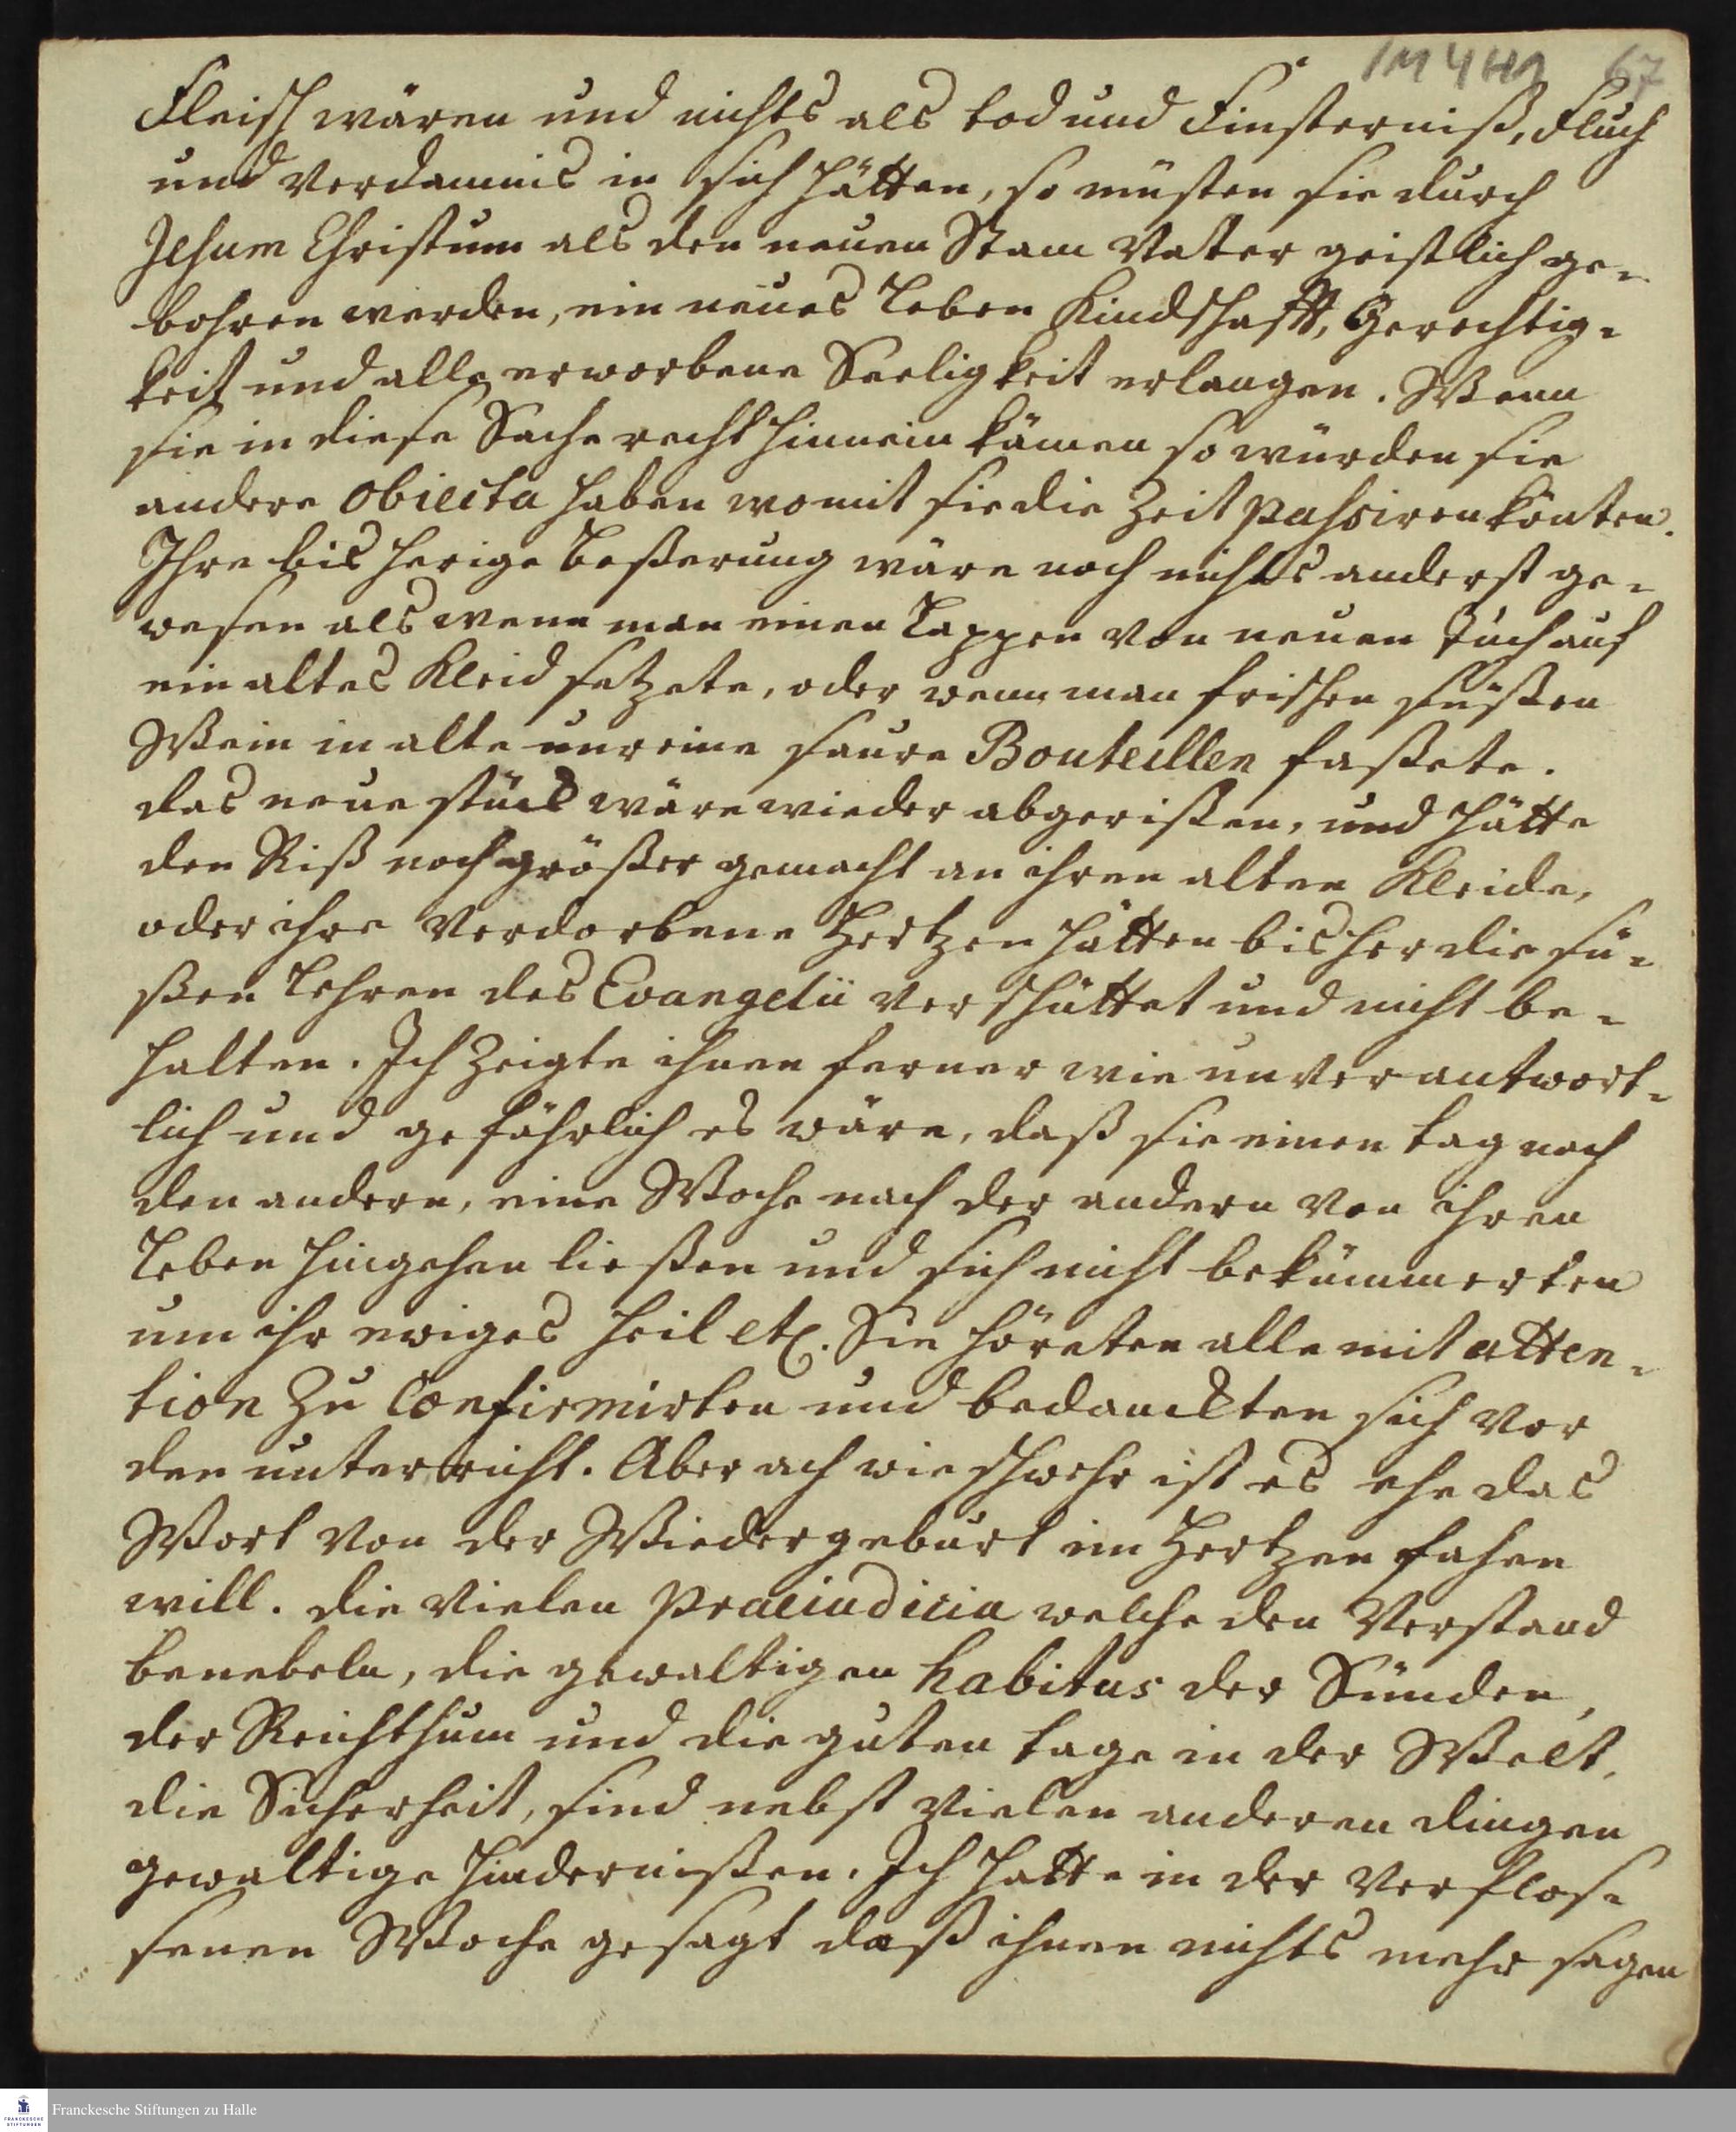 1M 4 H9 67
Fleisch wären und nichts als tod und Finsterniß, Fluch
und Verdamnis in sich hätten, so müsten sie durch
Jesum Christum als den neuen Stam Vater geistlich ge-
bohren werden, ein neues Leben Kindschafft, Gerechtig-
keit und alle erworbene Seeligkeit erlangen. Wenn
sie in diese Sache recht hinnein kämen so würden sie
andere Obiecta haben womit sie die Zeit passiren könten.
Ihre bisherige beßerung wäre noch nichts anderst ge-
wesen als wenn man einen Lappen von neuen tuch auf
ein altes Kleid setzete, oder wenn man frischen süßen
Wein in alte unreine saure Bouteillen faßete.
das neue stück wäre wieder abgerißen, und hätte
den Riß noch größer gemacht an ihren alten Kleide,
oder ihre verdorbene Hertzen hätten bisher die sü-
ßen Lehren des Evangelii verschüttet und nicht be-
halten. Ich zeigte ihnen ferner wie unverantwort-
lich und gefährlich es wäre, daß sie einen tag nach
den andern, eine Woche nach der andern von ihren
Leben hingehen ließen und sich nicht bekümmerten
um ihr ewiges Heil etc. Sie höreten alle mit atten-
tion zu Confirmirten und bedanckten sich vor
den unterricht. Aber ach wie schwehr ist es ehe das
Wort von der Wiedergeburt im Hertzen fahen
will. die vielen Praeiudicia welche den Verstand
benebeln, die gewaltigen habitus der Sünden,
der Reichthum und die guten tage in der Welt,
die Sicherheit, sind nebst vielen anderen dingen
gewaltige Hindernißen. Ich hatte in der verflos-
senen Woche gesagt daß ihnen nichts mehr sagen
FRANCKESCHE STIFTUNGEN
Franckesche Stiftungen zu Halle